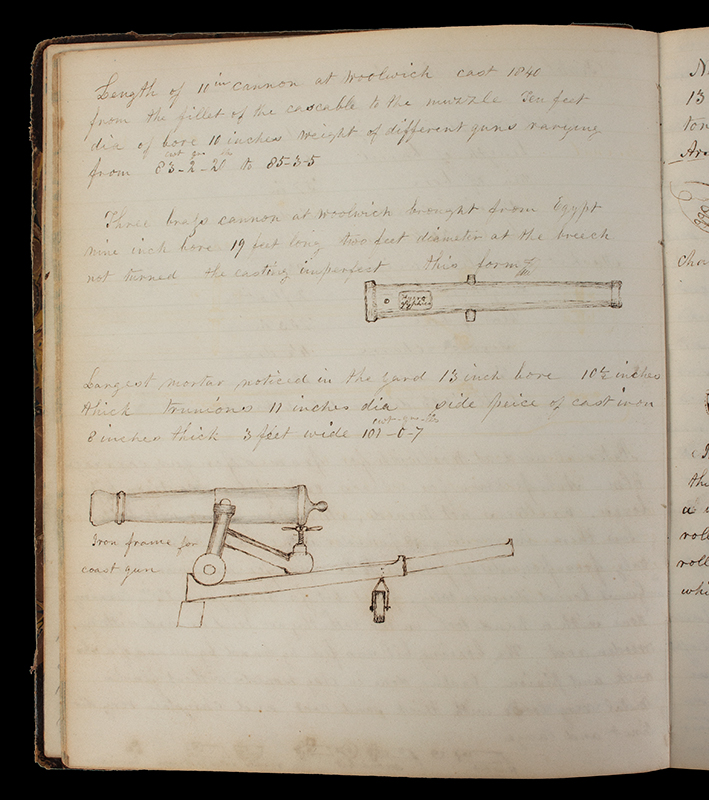 Length of 10 in cannon at Woolwich cast 1840
from the fillet of the cascable to the muzzle Ten feet
dia of bore 10 inches weight of different guns varying
cwt qrs lbs
from 83-2-20 to 85-3-5
Three brass cannon at Woolwich brought from Egypt
nine inch bore 19 feet long two feet diameter at the breech
not turned the casting imperfect this form
Largest mortar noticed in the yard 13 inch bore 10½ inches
thick trunions 11 inches dia side peice of cast iron
8 inches thick 3 feet wide
cwt-qrs-lbs
101-0-7
Iron frame for
coast gun
13
ton
Char
the
roll
roll
whi